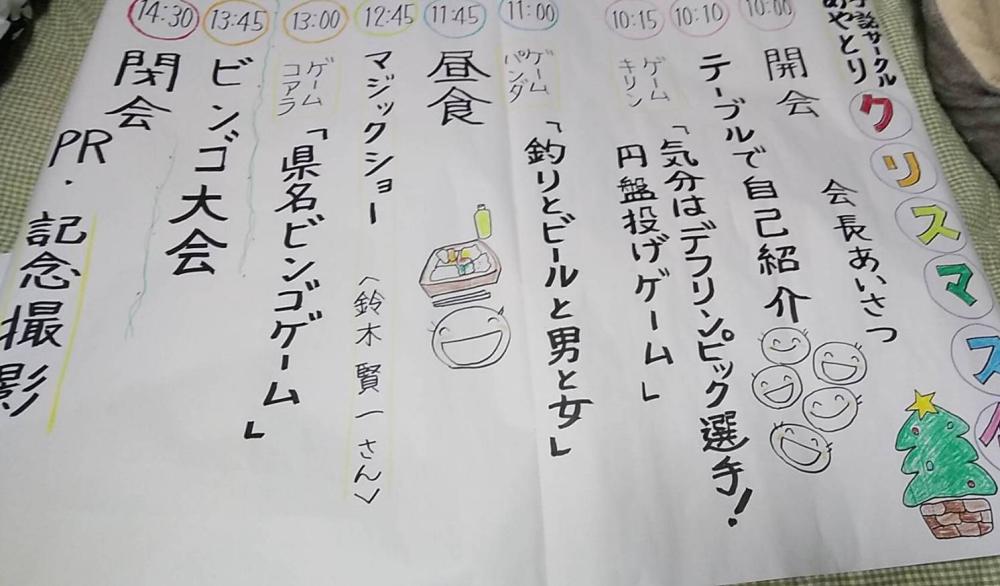 手話サークル
あやとり
クリスマス
10:00
開会
会長あいさつ
10:10
テーブルで自己紹介
10:15
ゲーム
キリン
「気分はデフリンピック選手!
円盤投げゲーム」
11:00
ゲーム
パンダ
「釣りとビールと男と女」
11:45
昼食
12:45
マジックショー
<鈴木賢一さん>
13:00
ゲーム
コアラ
「県名ビンゴゲーム」
13:45
ビンゴ大会
14:30
閉会
PR・記念撮影